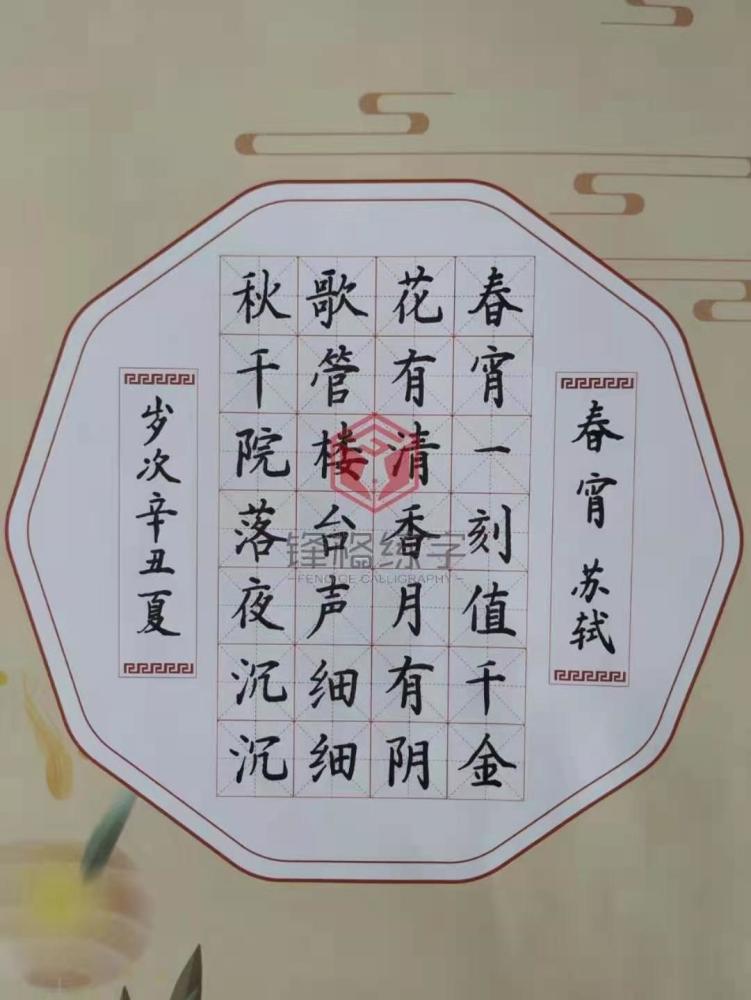 春宵 苏轼
春宵一刻值千金
花有清香月有阴
歌管楼台声细细
秋千院落夜沉沉
岁次辛丑夏
锋格练字
FENGGE CALLIGRAPHY